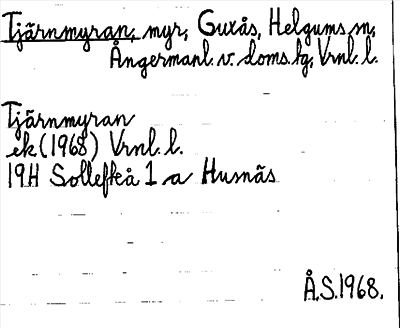 Tjärnmyran, myr, Guxås, Helgums sn,
Ångermanl. v. doms. hg, Vrnl. l.
Tjärnmyran
ek (1968) Vrnl. l.
19H Sollefteå 1 a Husnäs
Å.S. 1968.